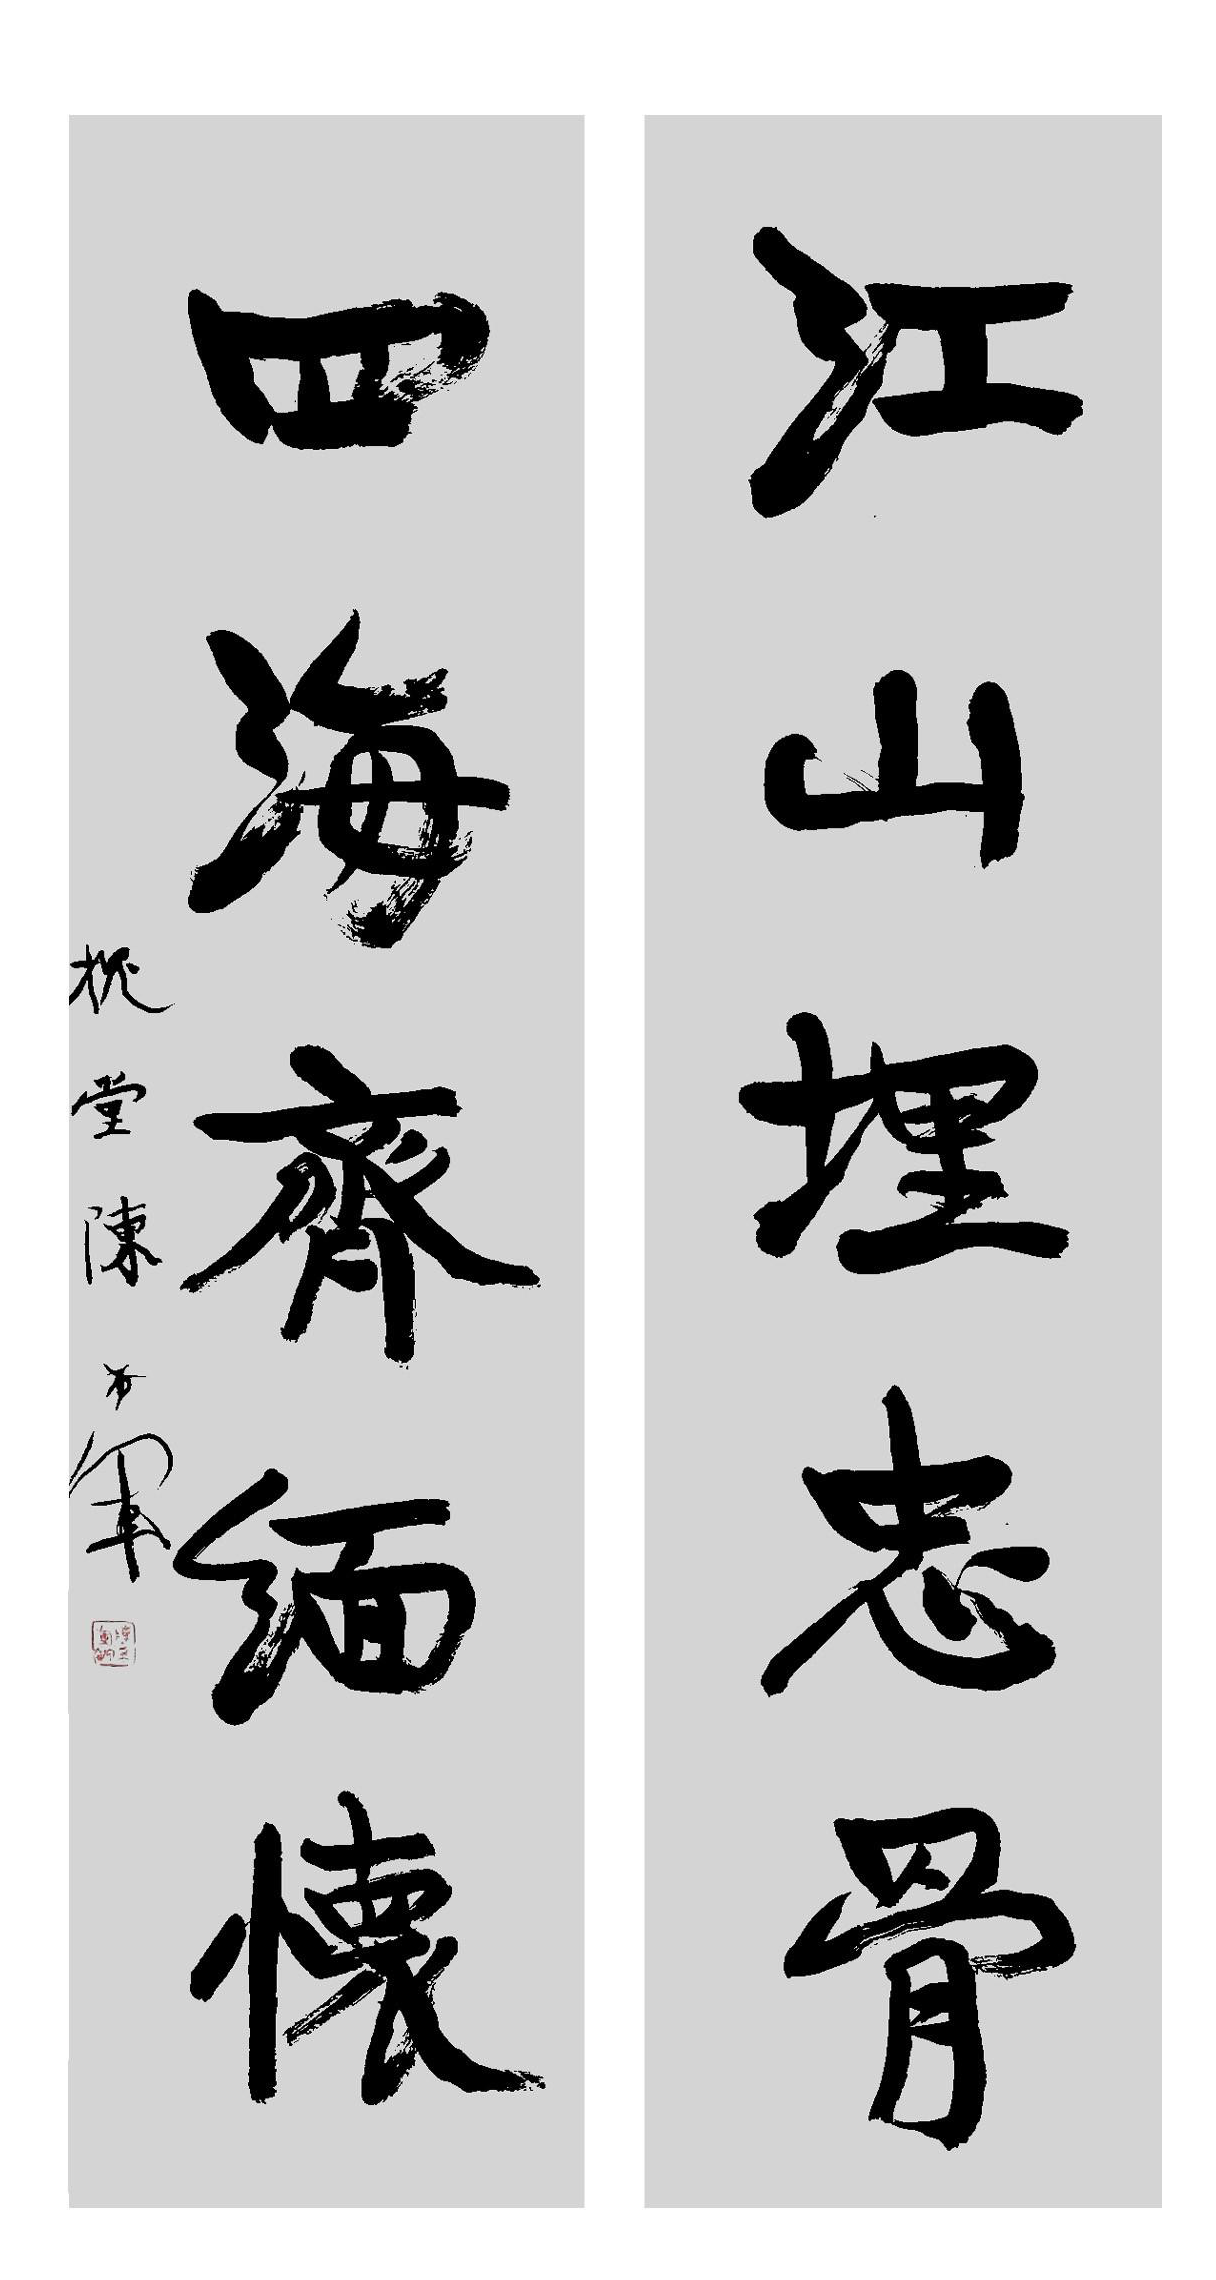 江山埋忠骨
四海齊緬懷
堂陳軍